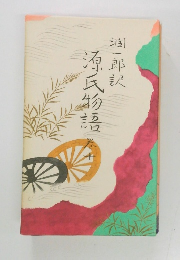 潤一郎訳
源氏物語
巻十